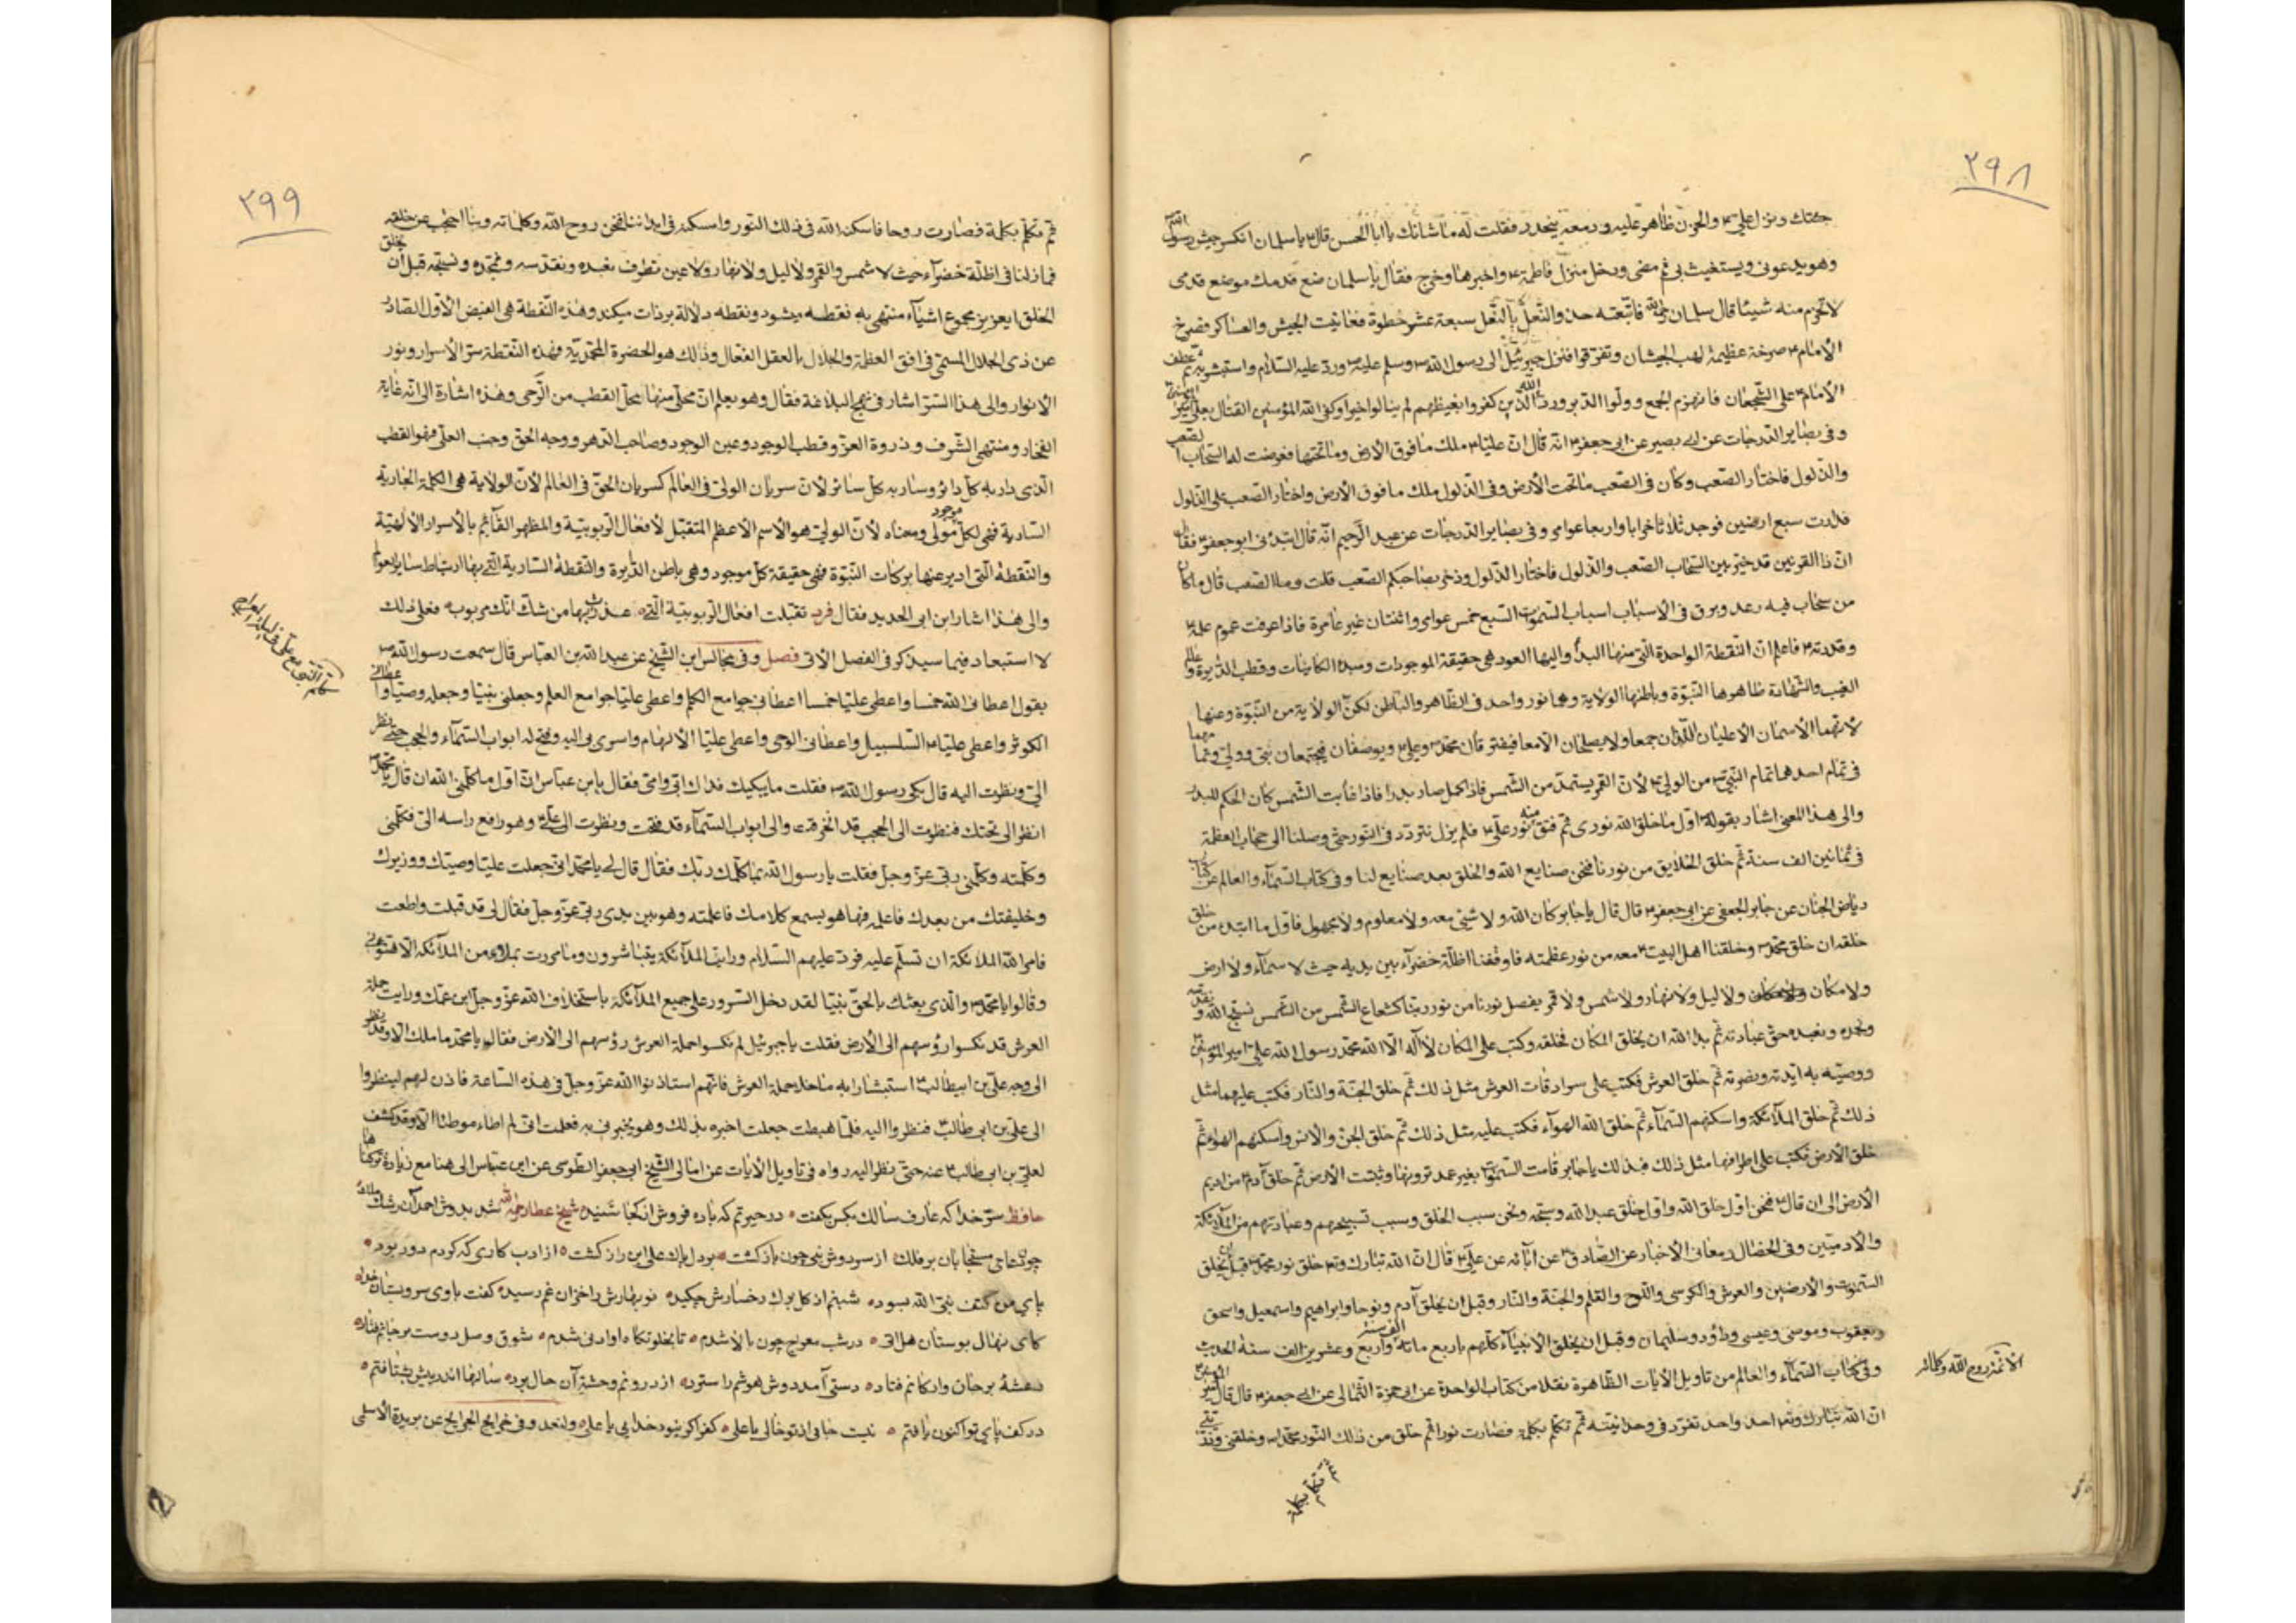 ٢٩٨
جئتك ونزل علي ع والحزن ظاهر عليه ودمعه ينحدر فقلت له ما شانك يا ابا الحسن قال ع يا سلمان انكسر جيش رسول الله ص
وهو يدعوني ويستغيث بي ثم مضى ودخل منزل فاطمة ع واخبرها وخرج فقال يا سلمان ضع قدمك موضع قدمي
لا تخرم منه شيئا قال سلمان ره فاتبعته حذو النعل بالنعل سبعة عشر خطوة فعاينت الجيش والعساكر فصرخ
الامام ع صرخة عظيمة لهب الجيشان وتفرقوا فنزل جبرئيل الى رسول الله ص وسلم عليه ورد عليه السلام واستبشر به ثم عطف
الامام ع على الشجعان فانهزم الجمع وولوا الدبر ورد الله الذين كفروا بغيظهم لم ينالوا خيرا وكفى الله المؤمنين القتال بعلي امير المؤمنين
وفي بصاير الدرجات عن ابي بصير عن ابي جعفر ع انه قال ان عليا ع ملك ما فوق الارض وما تحتها فعرضت له السحاب الصعب
والذلول فاختار الصعب وكان في الصعب ما تحت الارض وفي الذلول ملك ما فوق الارض واختار الصعب على الذلول
فدارت سبع ارضين فوجد ثلاثا خرابا واربعا عوامر وفي بصاير الدرجات عن عبد الرحيم انه قال ابتدئني ابو جعفر ع فقال
ان ذا القرنين قد خير بين السحاب الصعب والذلول فاختار الذلول وذخر لصاحبكم الصعب قلت وما الصعب قال ما كان
من سحاب فيه رعد وبرق في الاسباب اسباب السموات السبع خمس عوامر واثنتان غير عامرة فاذا عرفت عموم علمه
وقدرته ع فاعلم ان النقطة الواحدة التي منها البدء واليها العود هي حقيقة الموجودات ومبدء الكاينات وقطب الدايرة وعالم
الغيب والشهادة ظاهرها النبوة وباطنها الولاية وهما نور واحد في الظاهر والباطن لكن الولاية من النبوة وعنها
لانهما الاسمان الاعليان اللذان جمعا ولا يصلحان الا معا فيفترقان محمد ص وعلي ع ويوصفان فيجتمعان نبي وولي وتمامهما
في تمام احدهما تمام النبي ص من الولي ع لان القمر يستمد من الشمس فاذا كمل صار بدرا فاذا غابت الشمس كان الحكم للبدر
والى هذا المعنى اشار بقوله ص اول ما خلق الله نوري ثم فتق منه نور علي ع فلم يزل نتردد في النور حتى وصلنا الى حجاب العظمة
في ثمانين الف سنة ثم خلق الخلايق من نورنا فنحن صنايع الله والخلق بعد صنايع لنا وفي كتاب السماء والعالم عن كتاب
رياض الجنان عن جابر الجعفي عن ابي جعفر ع قال قال يا جابر كان الله ولا شيئ معه ولا معلوم ولا مجهول فاول ما ابتدء من خلق
خلقه ان خلق محمدا ص وخلقنا اهل البيت ع معه من نور عظمته فاوقفنا اظلة خضراء بين يديه حيث لا سماء ولا ارض
ولا مكان ولا ليل ولا نهار ولا شمس ولا قمر يفصل نورنا من نور ربنا كشعاع الشمس من الشمس نسبح الله ونقدسه
ونحمده ونعبده حق عبادته ثم بدا لله ان يخلق المكان فخلقه وكتب على المكان لا اله الا الله محمد رسول الله علي امير المؤمنين
ووصيه به ايدته ونصرته ثم خلق العرش فكتب على سرادقات العرش مثل ذلك ثم خلق الجنة والنار فكتب عليهما مثل
ذلك ثم خلق الملائكة واسكنهم السماء ثم خلق الله الهواء فكتب عليه مثل ذلك ثم خلق الجن والانس واسكنهم الهواء ثم
خلق الارض فكتب على اطرافها مثل ذلك فبذلك يا جابر قامت السموات بغير عمد ترونها وثبتت الارض ثم خلق آدم ع من اديم
الارض الى ان قال ع فنحن اول خلق الله واول خلق عبد الله وسبحه ونحن سبب الخلق وسبب تسبيحهم وعبادتهم من الملائكة
والادميين وفي الخصال ومعاني الاخبار عن الصادق ع عن ابائه عن علي ع قال ان الله تبارك وتع خلق نور محمد ص قبل ان يخلق
السموات والارضين والعرش والكرسي واللوح والقلم والجنة والنار وقبل ان يخلق آدم ونوحا وابراهيم واسمعيل واسحق
ويعقوب وموسى وعيسى وداود وسليمان وقبل ان يخلق الانبياء كلهم باربع مائة الف سنة واربع وعشرين الف سنة الحديث
وفي كتاب السماء والعالم من تاويل الايات الظاهرة نقلا من كتاب الواحدة عن ابي حمزة الثمالي عن ابي جعفر ع قال قال امير المؤمنين
ان الله تبارك وتع احد واحد تفرد في وحدانيته ثم تكلم بكلمة فصارت نورا ثم خلق من ذلك النور محمدا ص وخلقني وذريتي
ثم تكلم بكلمة
الائمة روح الله وكلماته
٢٩٩
ثم تكلم بكلمة فصارت روحا فاسكنه الله في ذلك النور واسكنه في ابداننا فنحن روح الله وكلماته وبنا احتجب عن خلقه
فما زلنا في اظلة خضراء حيث لا شمس ولا قمر ولا ليل ولا نهار ولا عين تطرف نعبده ونقدسه ونمجده ونسبحه قبل ان يخلق
الخلق ايعزيز مجموع اشياء منتهى به نقطه ميشود ونقطه دلالة بر ذات ميكند وهذه النقطة هي الفيض الاول الصادر
عن ذي الجلال المسمى في افق العظمة والجلال بالعقل الفعال وذلك هو الحضرة المحمدية فهذه النقطة سر الاسرار ونور
الانوار والى هذا السر اشار في نهج البلاغة فقال وهو يعلم ان محلي منها محل القطب من الرحى وهذه اشارة الى انه غاية
الفخار ومنتهى الشرف وذروة العز وقطب الوجود وعين الوجود وصاحب الدهر ووجه الحق وجنب العلي فهو القطب
الذي دار به كل دائر وسار به كل سائر لان سريان الولي في العالم كسريان الحق في العالم لان الولاية هي الكلمة الجارية
السارية فهي لكل موجود مولى ومعناه لان الولي هو الاسم الاعظم المتقبل لافعال الربوبية والمظهر القائم بالاسرار الالهية
والنقطة التي ادير عنها بركات النبوة فهي حقيقة كل موجود وهي باطن الدايرة والنقطة السارية التي بها ارتباط ساير العوالم
والى هذا اشار ابن ابي الحديد فقال فرد تقبلت افعال الربوبية التي عذرت بها من شك انك مربوب فعلى ذلك
لا استبعاد فيما سيذكر في الفصل الاتي فصل وفي مجالس ابن الشيخ عن عبد الله بن العباس قال سمعت رسول الله ص
يقول اعطاني الله خمسا واعطى عليا خمسا اعطاني جوامع الكلم واعطى عليا جوامع العلم وجعلني نبيا وجعله وصيا واعطاني
الكوثر واعطى عليا ع السلسبيل واعطاني الوحي واعطى عليا الالهام واسرى بي اليه وفتح له ابواب السماء والحجب حتى نظر
الي ونظرت اليه قال بكى رسول الله ص فقلت ما يبكيك فداك ابي وامي فقال يا بن عباس ان اول ما كلمني الله ان قال يا محمد
انظر الى تحتك فنظرت الى الحجب قد انخرقت والى ابواب السماء قد فتحت ونظرت الى علي ع وهو رافع راسه الي فكلمني
وكلمته وكلمني ربي عز وجل فقلت يا رسول الله بما كلمك ربك فقال قال لي يا محمد اني جعلت عليا وصيك ووزيرك
وخليفتك من بعدك فاعلمه فها هو يسمع كلامك فاعلمته وهو بين يدي ربي عز وجل فقال لي قد قبلت واطعت
فامر الله الملائكة ان تسلم عليه فرد عليهم السلام ورايت الملائكة يتباشرون وما مررت بملاء من الملائكة الا هنؤني
وقالوا يا محمد ص والذي بعثك بالحق نبيا لقد دخل السرور على جميع الملائكة باستخلاف الله عز وجل ابن عمك ورايت حملة
العرش قد نكسوا رؤسهم الى الارض فقلت يا جبرئيل لم نكسوا حملة العرش رؤسهم الى الارض فقال يا محمد ما ملك الا وقد نظر
الى وجه علي بن ابيطالب ع استبشارا به ما خلا حملة العرش فانهم استاذنوا الله عز وجل في هذه الساعة فاذن لهم لينظروا
الى علي بن ابي طالب ع فنظروا اليه فلما هبطت جعلت اخبره بذلك وهو يخبرني به فعلمت اني لم اطاء موطئا الا وقد كشف
لعلي بن ابي طالب ع عنه حتى نظر اليه رواه في تاويل الايات عن امالي الشيخ ابي جعفر الطوسي عن ابن عباس الى هنا مع زيادة تركناها
حافظ سر خدا كه عارف سالك بكس نگفت در حيرتم كه باده فروش از كجا شنيد شيخ عطار رحمه الله شد بدوش احمد آن رشك ملك
چون دعاي مستجابان بر فلك از سر دوش نبي چون بازگشت بر دل پاك علي اين راز گشت از ادب كاري كه كردم دور بود
پاي من كتف نبي الله بسود شبنم از گل برك رخسارش چكيد نوبهارش را خزان غم رسيد گفت با وي سرو بستان خدا
كاي نهال بوستان هل اتى در شب معراج چون بالا شدم تا بخلوتگاه او ادنى شدم شوق وصل دوست بر جانم فتاد
دهشة بر جان واركانم فتاد دستي آمد دوش هوشم را سترد از درونم وحشت آن حال برد سالها اندر پيش بشتافتم
در كف پاي تو اكنون يافتم نيست جائي از تو خالي يا علي كفر اگر نبود خدايي يا علي ولنعد وفي خرايج الجرايح عن بريدة الاسلمي